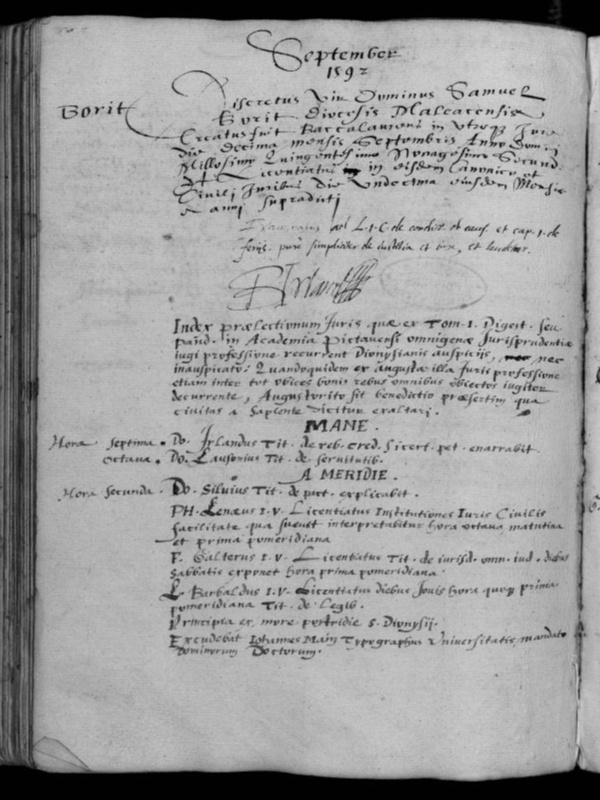 September
1592
Borit
Discretus Vir Dominus Samuel
Borit diocesis Maleacensis
Creatus fuit Baccalaureus in Vtroq Jure
die decima mensis Septembris Anno Domi
Millesimo Quingentesimo Nonagesimo Secund
Et Licentiatus in eisdem Canonico et
Civili Juribus die Undecima eiusdem Mensis
& anni supradicti
ad L. 1. C. de condict. et cap. 1. de
feriis. simpliciter de et
Irland
Index prælectionum Juris quæ ex Tom. 1. Digest. seu
pand. in Academia Pictavensi omnigenæ Jurisprudentiæ
iugi professione recurrent Dionysianis auspicijs, nec
inauspicato: Quandoquidem ex augusta illa Juris professione
etiam inter tot obices bonis rebus omnibus obiectos iugiter
decurrente, Augustorito sit benedictio præsertim qua
civitas a Sapiente dicitur exaltari.
MANE.
Hora septima. Do. Irlandus Tit. de reb. cred. si cert. pet. enarrabit
Octava. Do. Lausonius Tit. de servitutib.
A MERIDIE.
Hora Secunda. Do. Silvius Tit. de pact. explicabit.
PH. Lenæus I. V. Licentiatus Institutiones Iuris Civilis
facilitate qua suevit interpretabitur hora octava matutina
et prima pomeridiana
F. Galterus I. V. Licentiatus Tit. de iurisd. omn. iud. diebus
Sabbatis exponet hora prima pomeridiana.
L. Barbaldus I. V. Licentiatus diebus Jovis hora quoq prima
pomeridiana Tit. de Legib.
Principia ex more postridie S. Dionysij.
Excudebat Iohannes Main Typographus Universitatis, mandato
Dominorum Doctorum.